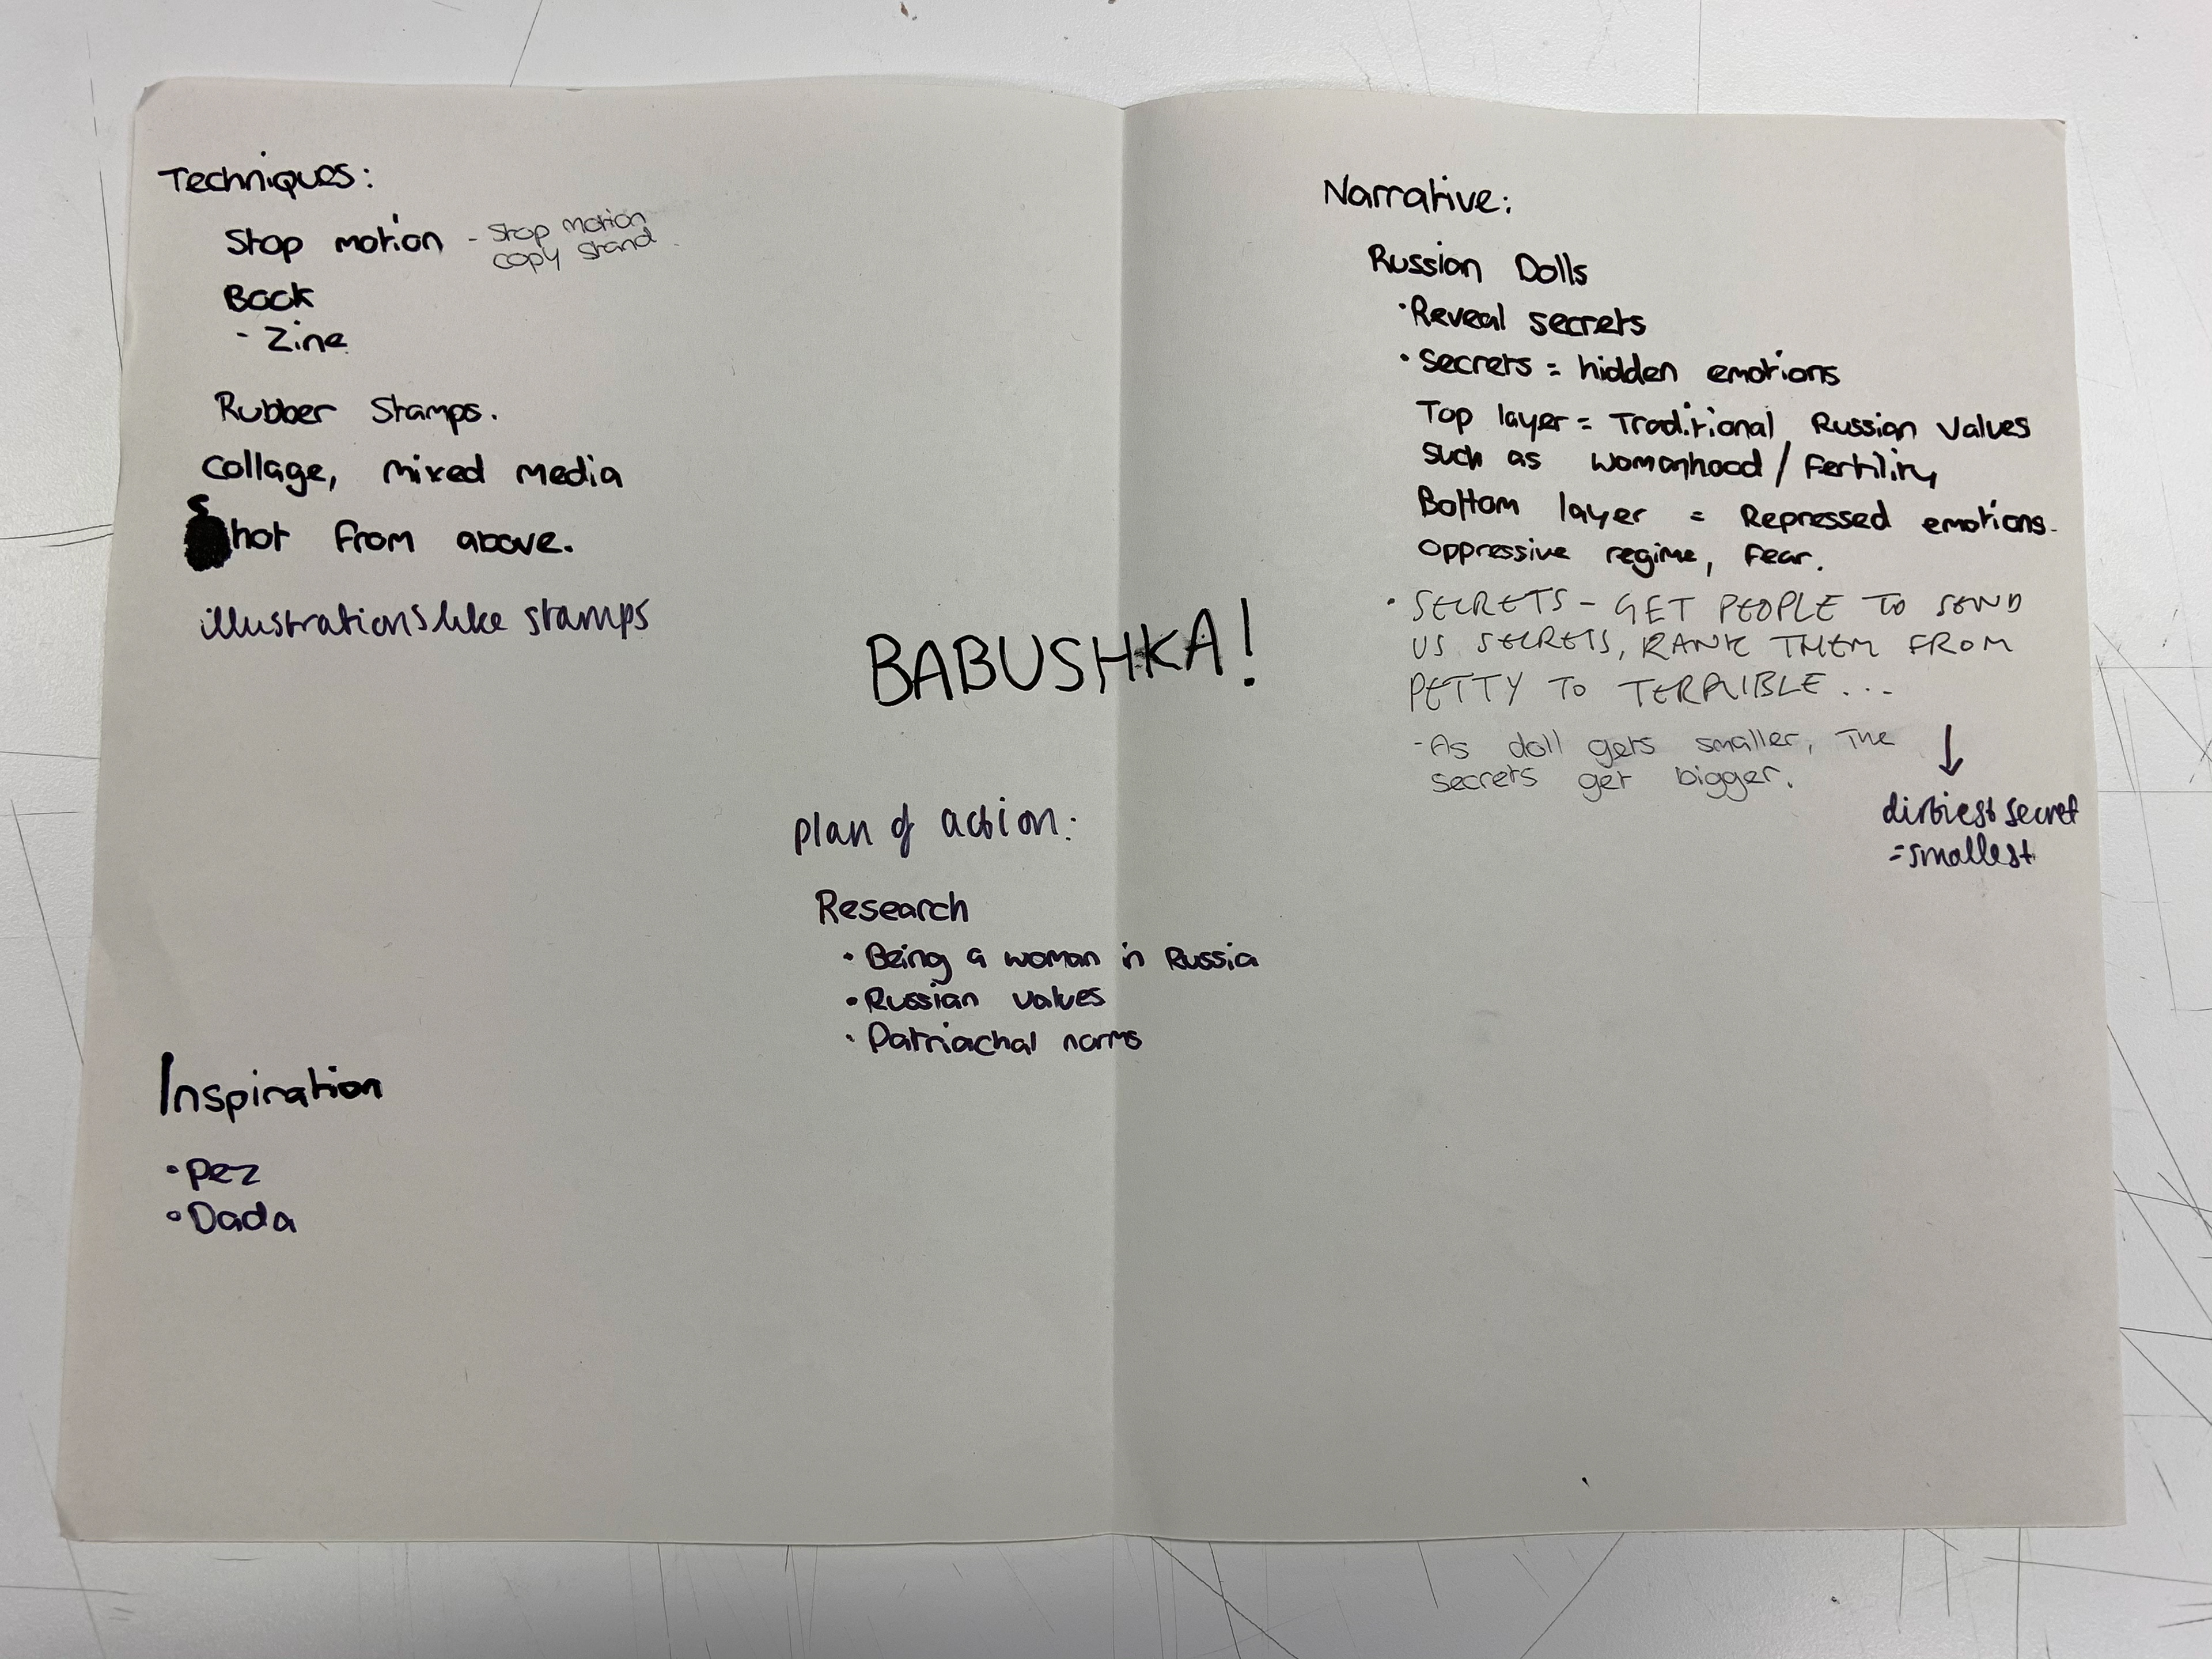 Techniques:
Stop motion - Stop motion
copy stand
Book
- Zine
Rubber Stamps.
Collage, mixed media
Shot from above.
illustrations like stamps
Inspiration
• Pez
• Dada
BABUSHKA!
plan of action:
Research
• Being a woman in Russia
• Russian values
• Patriachal norms
Narrative:
Russian Dolls
• Reveal secrets
• Secrets = hidden emotions
Top layer = Traditional Russian Values
such as womanhood / Fertility
Bottom layer = Repressed emotions.
oppressive regime, fear.
• SECRETS - GET PEOPLE TO SEND
US SECRETS, RANK THEM FROM
PETTY TO TERRIBLE...
- As doll gets smaller, the
secrets get bigger.
↓
dirtiest secret
= smallest